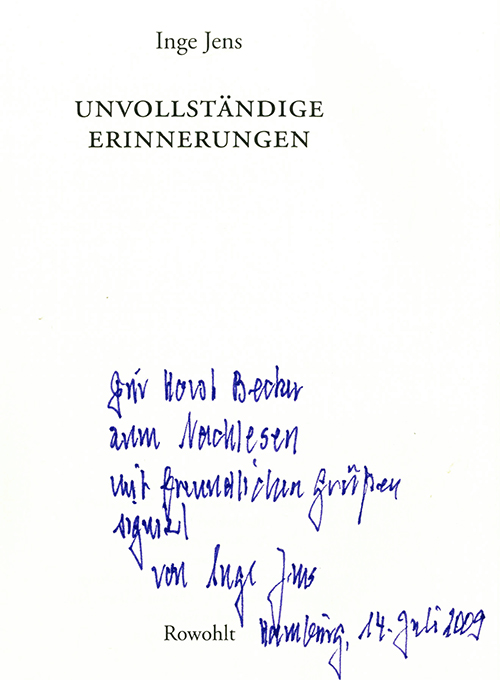 Inge Jens
UNVOLLSTÄNDIGE
ERINNERUNGEN
Für Horst Becker
zum Nachlesen
mit freundlichen Grüßen
signiert
von Inge Jens
Rowohlt
Hamburg, 14. Juli 2009